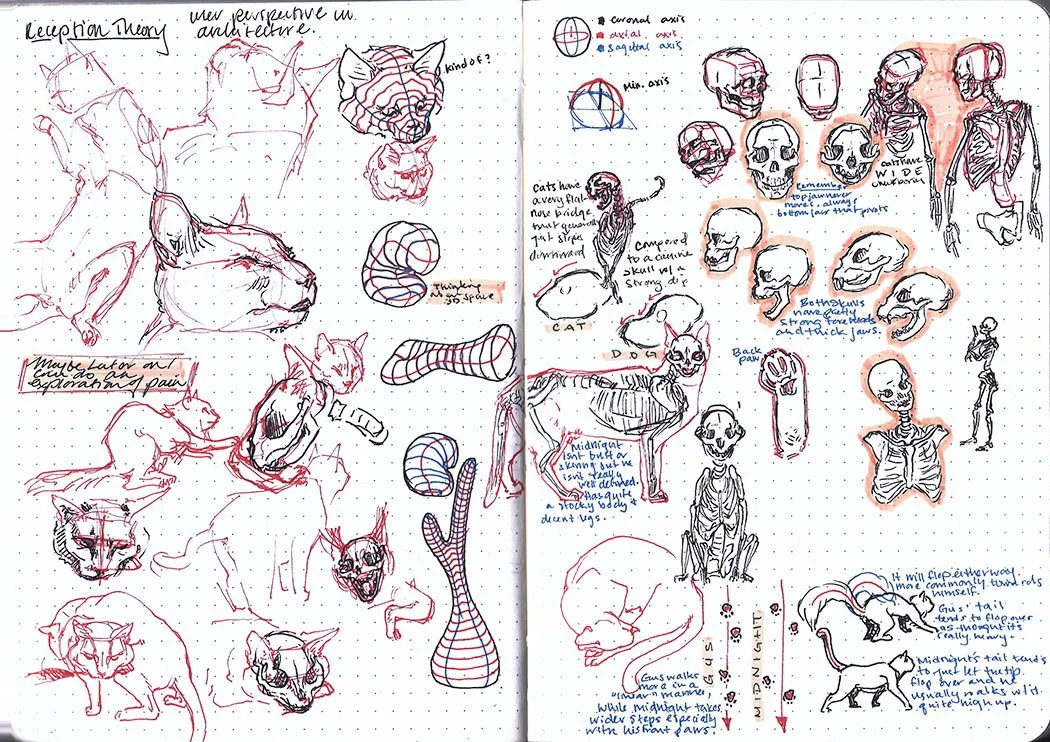 Reception Theory
user perspective in
architecture.
kind of?
Thinking
about
3D space
Maybe Later on I
could do an
exploration of pain
coronal axis
axial axis
sagital axis
Min. axis
cats have
WIDE
Remember
top jaw never
moves. always
bottom jaw that pivots
Cats have
a very flat
nose bridge
that generally
just slopes
downward
Compared
to a canine
skull w/ a
strong dip
CAT
DOG
Both skulls
have pretty
strong foreheads
and thick jaws.
Back
paw
Midnight
isnt buff or
skinny but he
isnt really
well defined.
Has quite
a stocky body &
decent legs.
GUS
MIDNIGHT
Gus walks
more in a
"linear" manner,
While midnight takes
wider steps especially
with his front paws.
It will flop either way.
more commonly towards
himself.
Gus' tail
tends to flop over
as thought it's
really heavy.
Midnight's tail tends
to just let the tip
flop over and he
usually walks w/ it
quite high up.